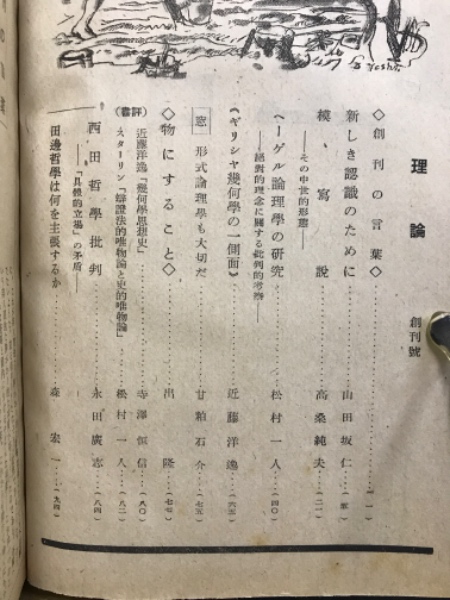 理論 創刊號
◇創刊の言葉◇…………(一)
新しき認識のために…………山田坂仁…
模寫說…………高桑純夫…(二二)
――その中世的形態――
ヘーゲル論理學の研究…………松村一人…(四〇)
――絕對的理念に關する批判的考察――
《ギリシヤ幾何學の一側面》…………近藤洋逸…(六五)
窓 形式論理學も大切だ…………甘粕石介…(七五)
◇物にすること◇…………出隆…(七七)
(書評)
近藤洋逸「幾何學思想史」…………寺澤恒信…(八〇)
スターリン「辯證法的唯物論と史的唯物論」…………松村一人…(八二)
西田哲學批判…………永田廣志…(八四)
――「具體的立場」の矛盾――
田邊哲學は何を主張するか…………森宏一…(九四)